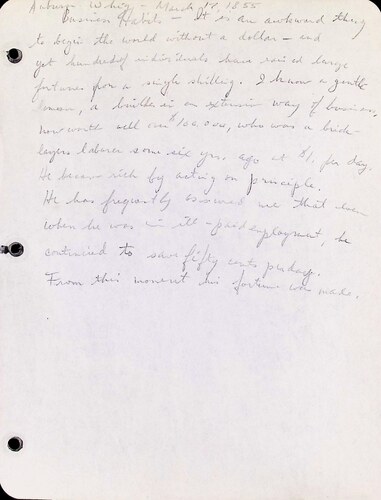 Auburn Whig - March 14, 1855
Business Habits - It is an awkward thing
to begin the world without a dollar - and
yet hundred of individuals have raised large
fortunes from a single shilling. I know a gentle
man, a builder in an extensive way of business,
now worth well over $100,000, who was a brick-
layers laborer some six yrs. ago at $1. per day.
He became rich by acting on principle.
He has frequently assured me that even
when he was in ill-paid employment, he
continued to save fifty cents per day.
From this moment his fortune was made.